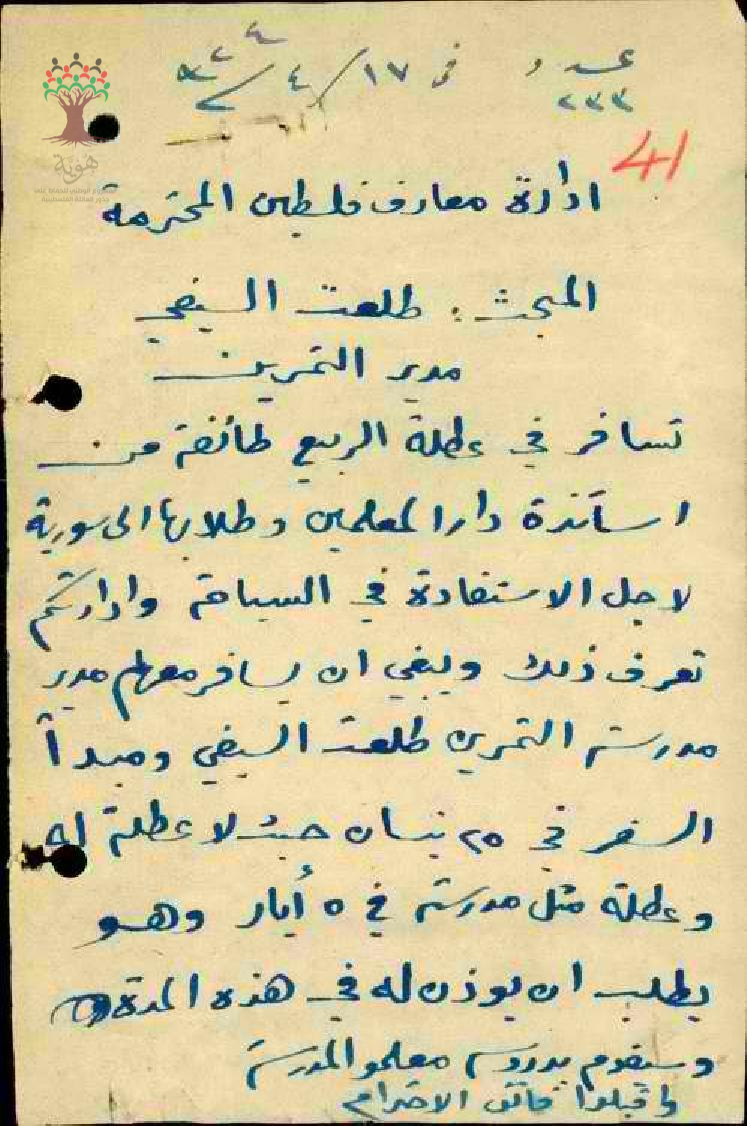 عدد ٢٣٣ في ١٧/٤/
41
هوية
ادارة معارف فلسطين المحترمة
المبحث : طلعت السيفي
مدير التمرين
تسافر في عطلة الربيع طائفة من
اساتذة دار المعلمين وطلابها الى سورية
لاجل الاستفادة في السياحة وادارتكم
تعرف ذلك وينبغي ان يسافر معهم مدير
مدرسة التمرين طلعت السيفي ومبدأ
السفر في ٢٥ نيسان حيث لا عطلة له
وعطلة مثل مدرسته في ٥ أيار وهو
يطلب ان يوذن له في هذه المدة
وسيقوم بدروسه معلمو المدرسة
واقبلوا فائق الاحترام